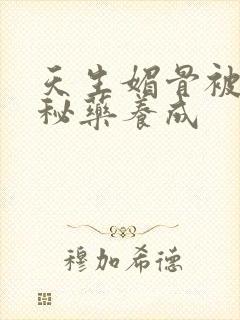 天生媚骨被
秘药养成
穆加希德